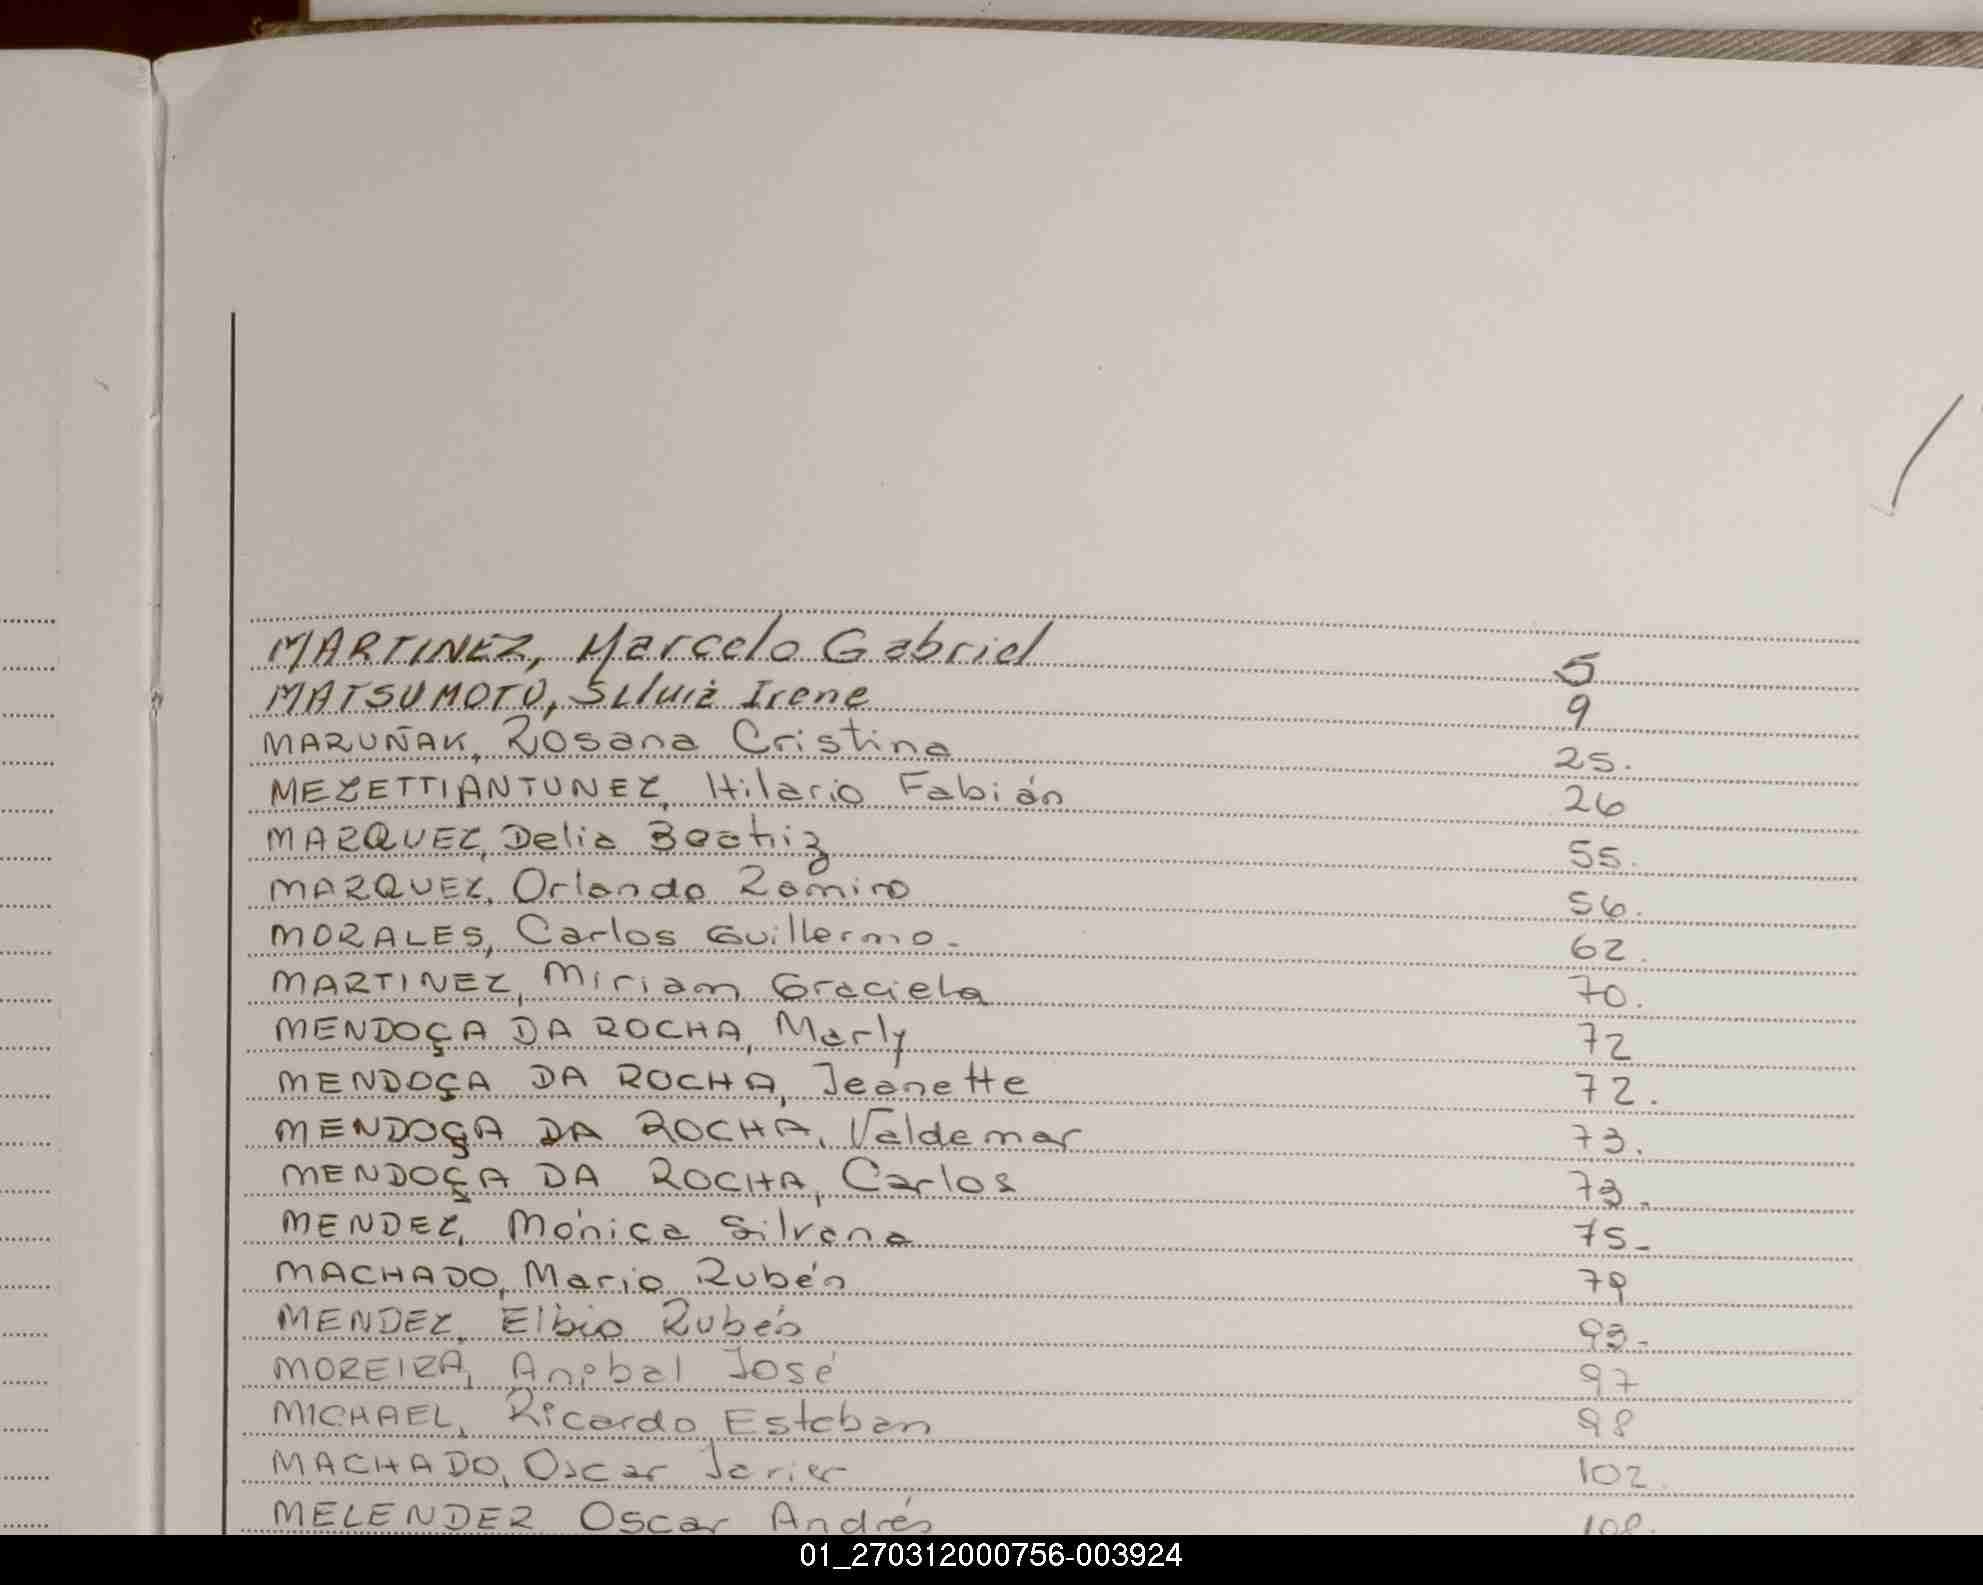 MARTINEZ, Marcelo Gabriel 5
MATSUMOTO, Silvia Irene 9
MARUÑAK, Rosana Cristina 25.
MEZETTIANTUNEZ, Hilario Fabián 26
MARQUEZ, Delia Beatriz 55.
MARQUEZ, Orlando Ramiro 56.
MORALES, Carlos Guillermo. 62.
MARTINEZ, Miriam Graciela 70.
MENDOÇA DA ROCHA, Marly 72
MENDOÇA DA ROCHA, Jeanette 72.
MENDOÇA DA ROCHA, Valdemar 73.
MENDOÇA DA ROCHA, Carlos 73.
MENDEZ, Mónica Silvana 75-
MACHADO, Mario Rubén 79
MENDEZ, Elbio Rubén 93-
MOREIRA, Anibal José 97
MICHAEL, Ricardo Esteban 98
MACHADO, Oscar Javier 102.
MELENDEZ Oscar Andrés 108.
01_270312000756-003924